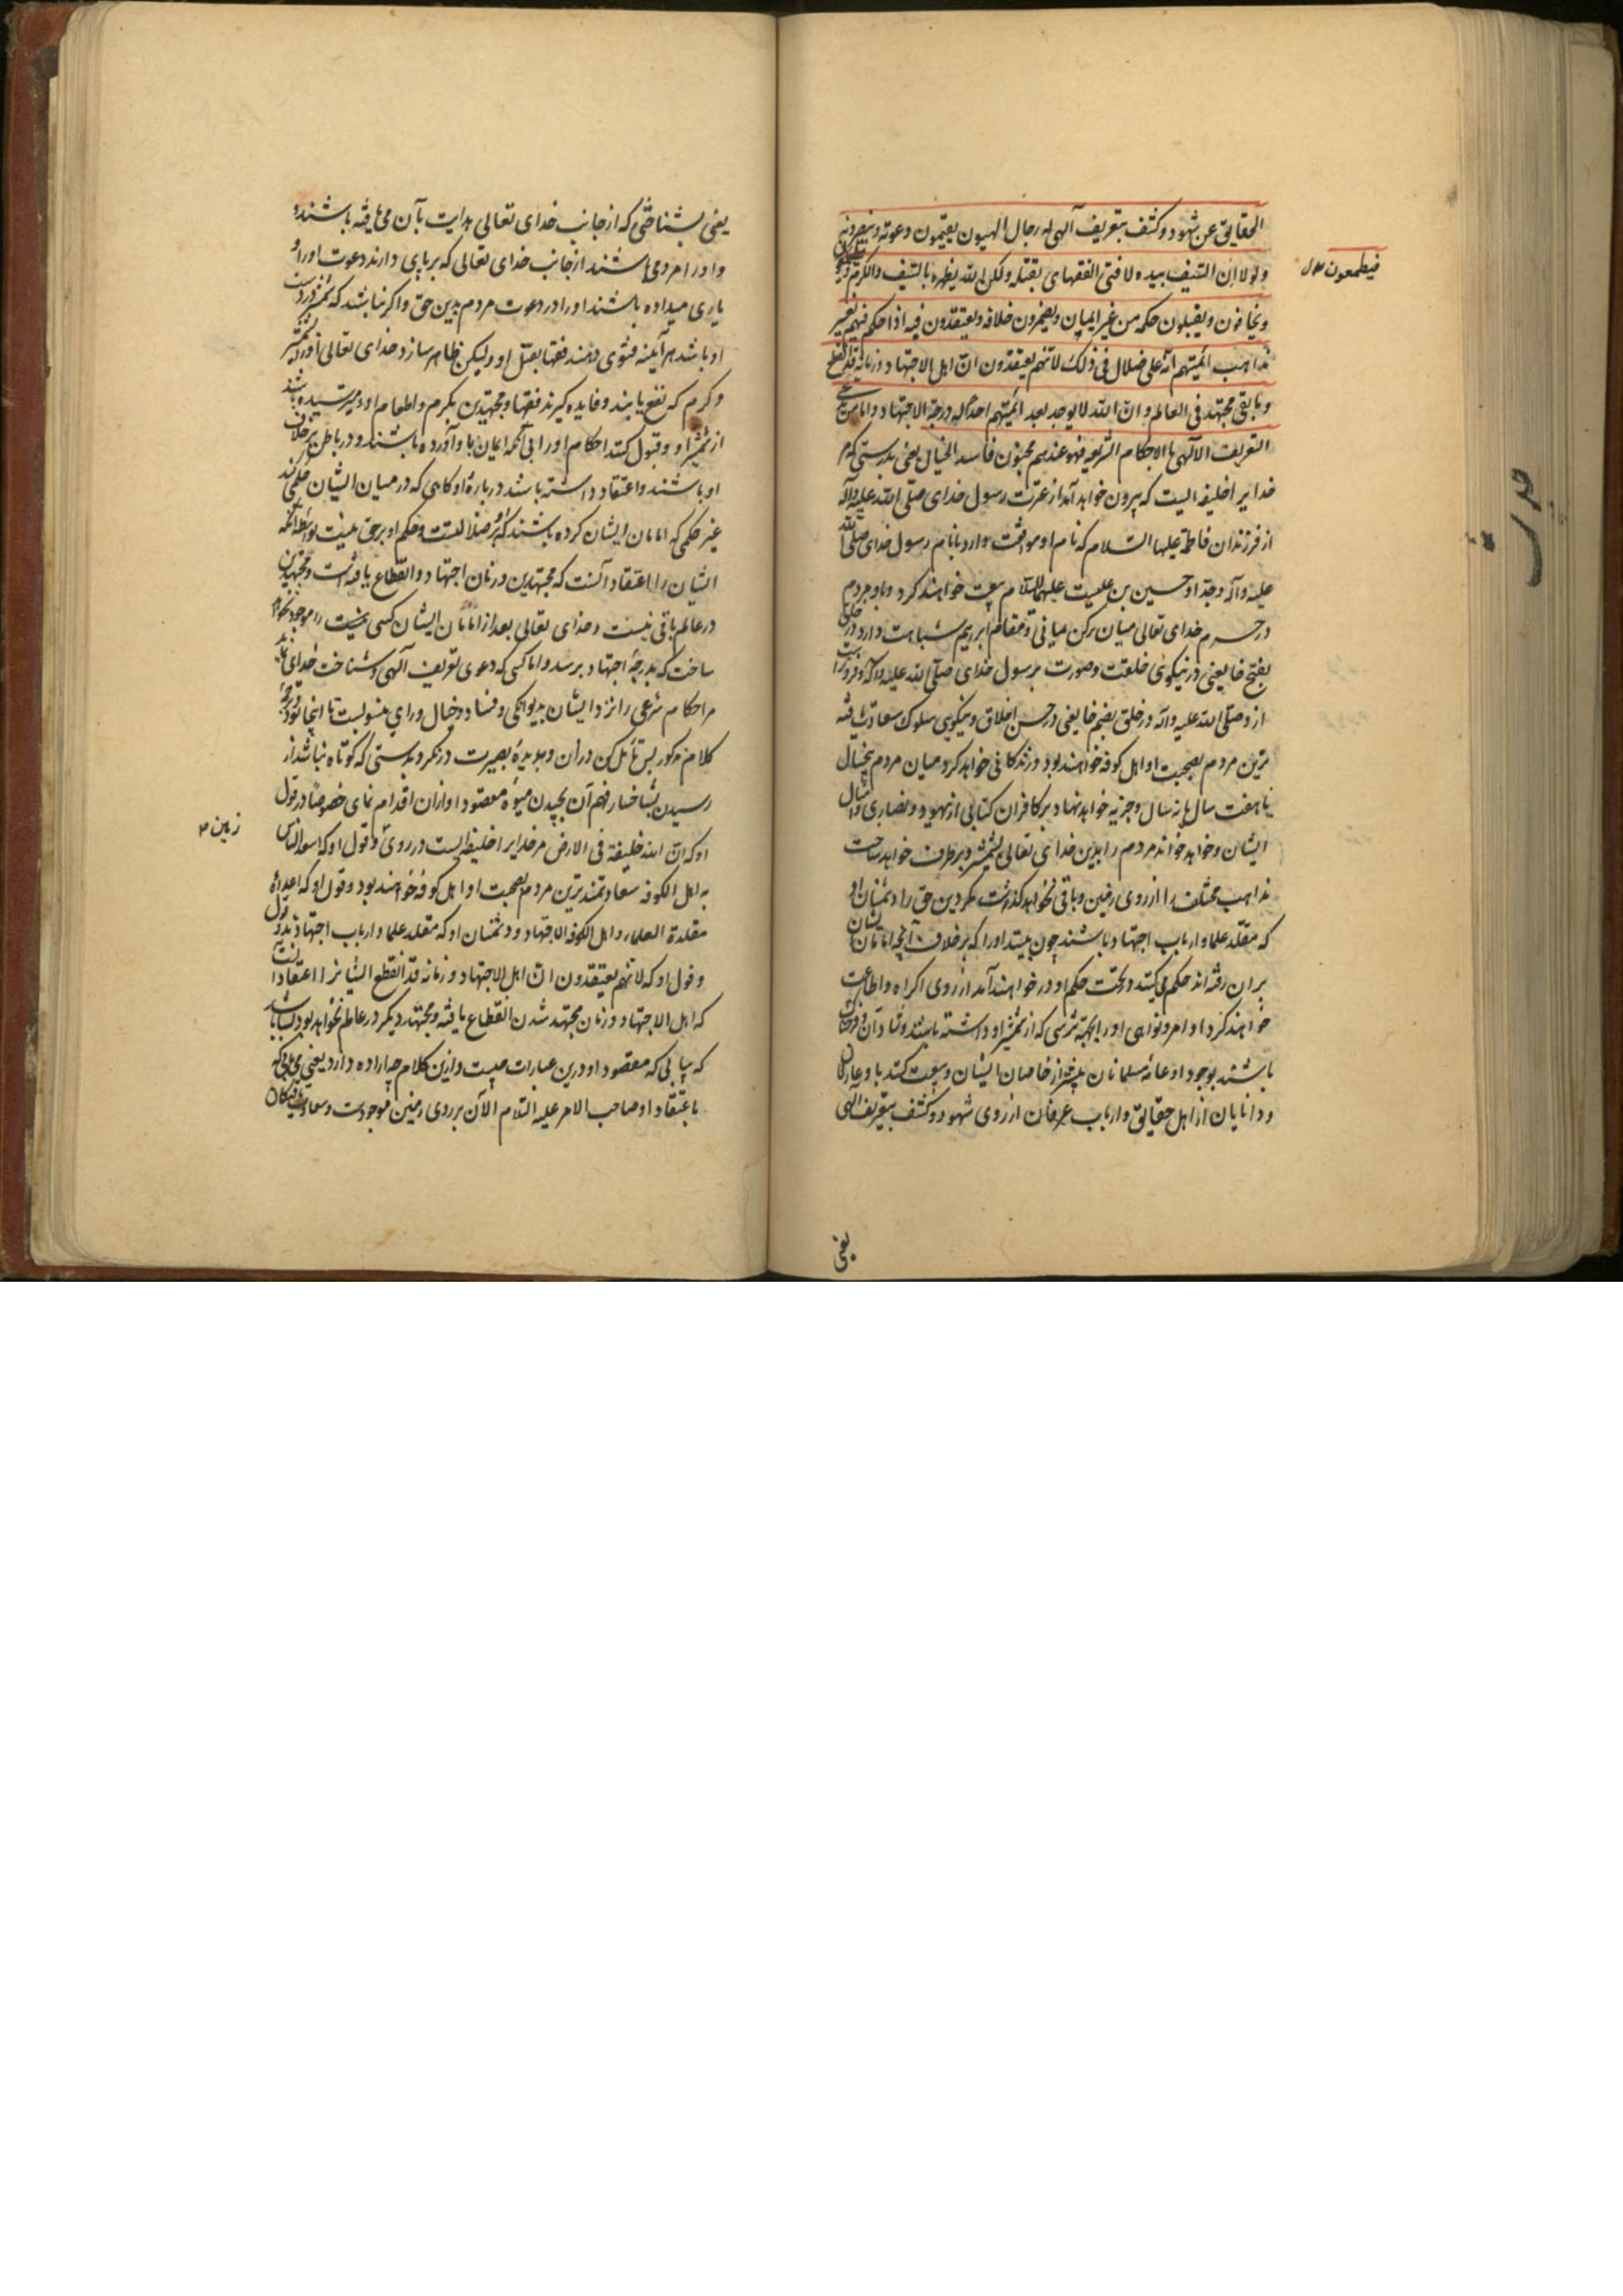 الحقایق عن شهود و کشف بتعریف آلهی له رجال الهیون یقیمون دعوته و ینصرونه
و لولا ان السّیف بیده لا فتی الفقهای بقتله و لکن الله یظهره بالسّیف و الکرم
فیطمعون
و یخافون و یقبلون حکمه من غیر ایمان و یضمرون خلافه و یعتقدون فیه اذا حکم فیهم بغیر
مذاهب ائمّتهم انّه علی ضلال فی ذلک لانّهم یعتقدون انّ اهل الاجتهاد و زمانه قد انقطع
و ما بقی مجتهد فی العالم و انّ الله لا یوجد بعد ائمّتهم احداً له درجة الاجتهاد و امّا من یدّعی
التعریف الآلهی بالاحکام الشرعیه فهو عندهم مجنون فاسد الخیال یعنی بدرستی که مر
خدایرا خلیفه ایست که بیرون خواهد آمد از عترت رسول خدای صلّی الله علیه و آله
از فرزندان فاطمة علیها السّلام که نام او موافقت دارد با نام رسول خدای صلّی الله
علیه و آله و جدّ او حسین بن علیست علیهما السّلام بیعت خواهند کرد با او مردم
در حرم خدای تعالی میان رکن یمانی و مقام ابرهیم شباهت دارد در خلق
بفتح خا یعنی در نیکویی خلقت و صورت برسول خدای صلّی الله علیه و آله و فروتر است
ازو صلّی الله علیه و آله در خلق بضم خا یعنی در حسن اخلاق و نیکویی سلوک سعادت یافته
ترین مردم بصحبت او اهل کوفه خواهند بود و زندگانی خواهد کرد میان مردم پنجسال
یا هفت سال یا نه سال و جزیه خواهد نهاد بر کافران کتابی از یهود و نصاری و امثال
ایشان و خواهد خواند مردم را بدین خدای تعالی بشمشیر و برطرف خواهد ساخت
مذاهب مختلف را از روی زمین و باقی نخواهد گذاشت مگر دین حق را و دشمنان او
که مقلّد علما و ارباب اجتهاد باشند چون ببینند او را که بر خلاف آنچه امامان ایشان
بران رفته اند حکم می کند در تحت حکم او در خواهند آمد از روی اکراه و اطاعت
خواهند کرد اوامر و نواهی او را بجهة ترسی که از شمشیر او داشته باشند و شاد آن و فرحان
باشند بوجود او عامّه مسلمانان بیشتر از خاصان ایشان و بیعت کنند با او عارفان
و دانایان از اهل حقایق و ارباب عرفان از روی شهود و کشف بتعریف آلهی
یعنی
یعنی بشناختی که از جانب خدای تعالی هدایت بآن می یافته باشند و
و او را مردمی باشند از جانب خدای تعالی که بر پای دارند دعوت او را و
یاری میداده باشند او را در دعوت مردم بدین حق و اگر نباشد که شمشیر در دست
او باشد هر آینه فتوی دهند فقها بقتل او و لیکن ظاهر سازد خدای تعالی او را بشمشیر
و کرم که نفع یابند و فایده گیرند فقها و مجتهدین بکرم و اطعام او و میترسیده باشند
از شمشیر او و قبول کنند احکام او را بی آنکه ایمان باو آورده باشند و در باطن بر خلاف
او باشند و اعتقاد داشته باشند درباره او گاهی که در میان ایشان حکم کند
غیر حکمی که امامان ایشان کرده باشند که بر ضلالتست و حکم او بر حق نیست بواسطه آنکه
ایشان را اعتقاد آنست که مجتهدین و زمان اجتهاد و انقطاع یافته است و مجتهدی
در عالم باقی نیست و خدای تعالی بعد از امامان ایشان کسی را موجود نخواهد
ساخت که بدرجهٔ اجتهاد برسد و اما کسی که دعوی تعریف آلهی و شناخت خدای نماید
مر احکام شرعی را نزد ایشان بدیوانگی و فساد و خیال و رای منسوبست تا اینجا بود ترجمهٔ
کلام مذکور پس تأمل کن در ان و بدیدهٔ بصیرت در نگر و بدرستی که کوتاه نباشد از
رسیدن بشاخسار فهم آن بچیدن میوهٔ مقصود او ازان اقدام نمای خصوصاً در قول
او که انّ لله خلیفة فی الارض مر خدایرا خلیفه ایست در روی و قول او که اسعد الناس
زمین
به اهل الکوفه سعادتمندترین مردم بصحبت او اهل کوفه خواهند بود و قول او که اعداؤه
مقلدة العلماء و اهل الاجتهاد و دشمنان او که مقلد علما و ارباب اجتهاد بود
و قول او که لانّهم یعتقدون انّ اهل الاجتهاد و زمانه قد انقطع ایشانرا اعتقاد
که اهل الاجتهاد و زمان مجتهد شدن انقطاع یافته و مجتهد دیگر در عالم نخواهد بود
که بیابی که مقصود او درین عبارات چیست و ازین کلام چه اراده دارد یعنی
باعتقاد او صاحب الامر علیه السّلام الآن بر روی زمین موجودست و سعادت یافتگان